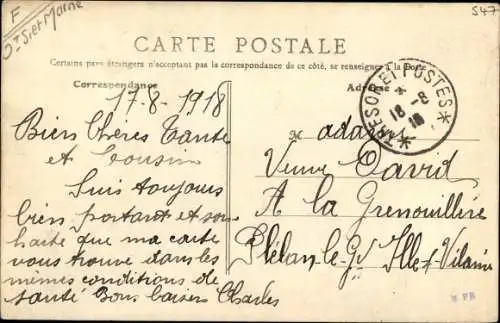 F
Set Marne
547
CARTE POSTALE
Certains pays étrangers n'acceptant pas la correspondance de ce côté, se renseigner à la Poste
Correspondance
Adresse
TRESOR ET POSTES
18-8
18
17-8-1918
Bien Chères Tante
et Cousine
Suis toujours
bien portant et sou
haite que ma carte
vous trouve dans les
mêmes conditions de
santé Bons baisers Charles
Madame
Veuve David
A la Grenouillère
Plélan-le-Gd Ille-&-Vilaine